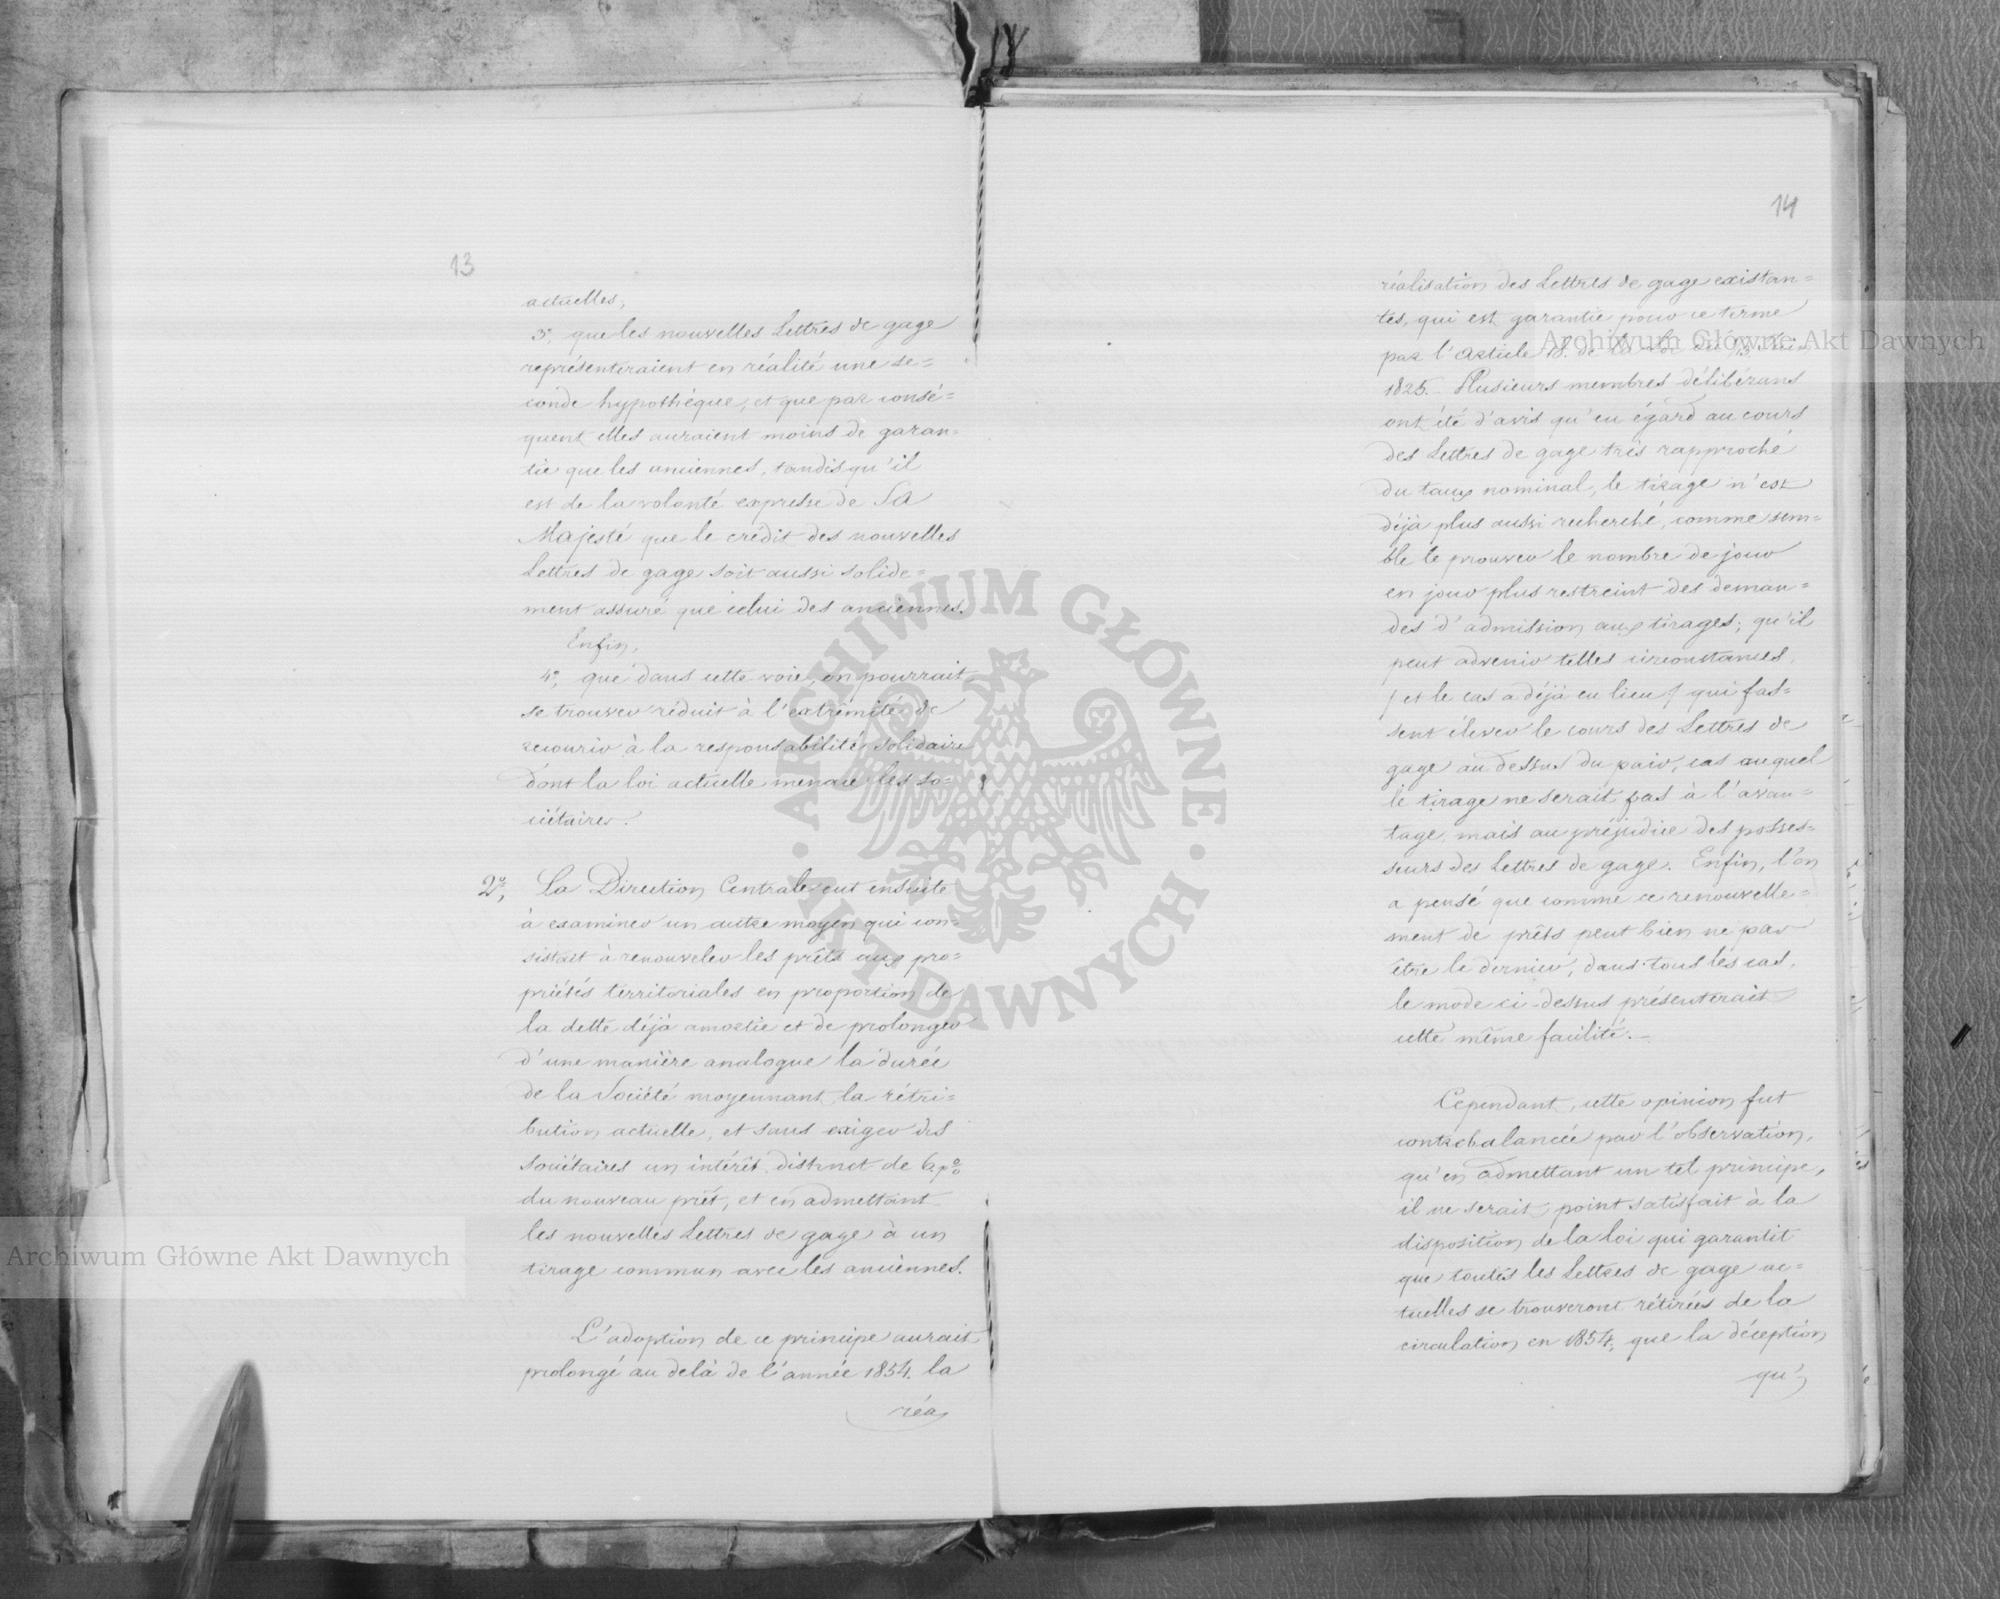 13
actuelles;
3°, que les nouvelles Lettres de gage
représenteraient en réalité une se=
conde hypothéque, et que par consé=
quent elles auraient moins de garan=
tie que les anciennes, tandisqu'il
est de la volonté expresse de Sa
Majesté que le crédit des nouvelles
Lettres de gage soit aussi solide=
ment assuré que celui des anciennes.
Enfin,
4°, que dans cette voie, on pourrait
se trouver réduit à l'extrémité de
recourir à la responsabilité solidaire
dont la loi actuelle menace les so=
ciétaires.
2°, La Direction Centrale eut ensuite
à examiner un autre moyen qui con=
sistait à renouveler les prêts aux pro=
priétés territoriales en proportion de
la dette déjà amortie et de prolonger
d'une manière analogue la durée
de la Société moyennant la rétri=
bution actuelle, et sans exiger des
sociétaires un intérêt distinct de 6 p%
du nouveau prêt, et en admettant
les nouvelles Lettres de gage à un
tirage commun avec les anciennes.
L'adoption de ce principe aurait
prolongé au delà de l'année 1854. la
réa
14
réalisation des Lettres de gage existan=
tes, qui est garantie pour ce terme
par l'Article de la
1825. Plusieurs membres délibérans
ont été d'avis qu'eu égard au cours
des Lettres de gage très rapproché
du taux nominal, le tirage n'est
déjà plus aussi recherché, comme sem=
ble le prouver le nombre de jour
en jour plus restreint des deman=
des d'admission aux tirages; qu'il
peut advenir telles circonstances,
/ et le cas a déjà eu lieu / qui fas=
sent élever le cours des Lettres de
gage au dessus du pair, cas auquel
le tirage ne serait pas à l'avan=
tage, mais au préjudice des posses=
seurs des Lettres de gage. Enfin, l'on
a pensé que comme ce renouvelle=
ment de prêts peut bien ne pas
être le dernier, dans tous les cas,
le mode ci-dessus présenterait
cette même facilité. —
Cependant, cette opinion fut
contrebalancée par l'observation,
qu'en admettant un tel principe,
il ne serait point satisfait à la
disposition de la loi qui garantit
que toutes les Lettres de gage ac=
tuelles se trouveront rétirées de la
circulation en 1854; que la déception
qu'
Archiwum Główne Akt Dawnych
Archiwum Główne Akt Dawnych
ARCHIWUM GŁÓWNE AKT DAWNYCH